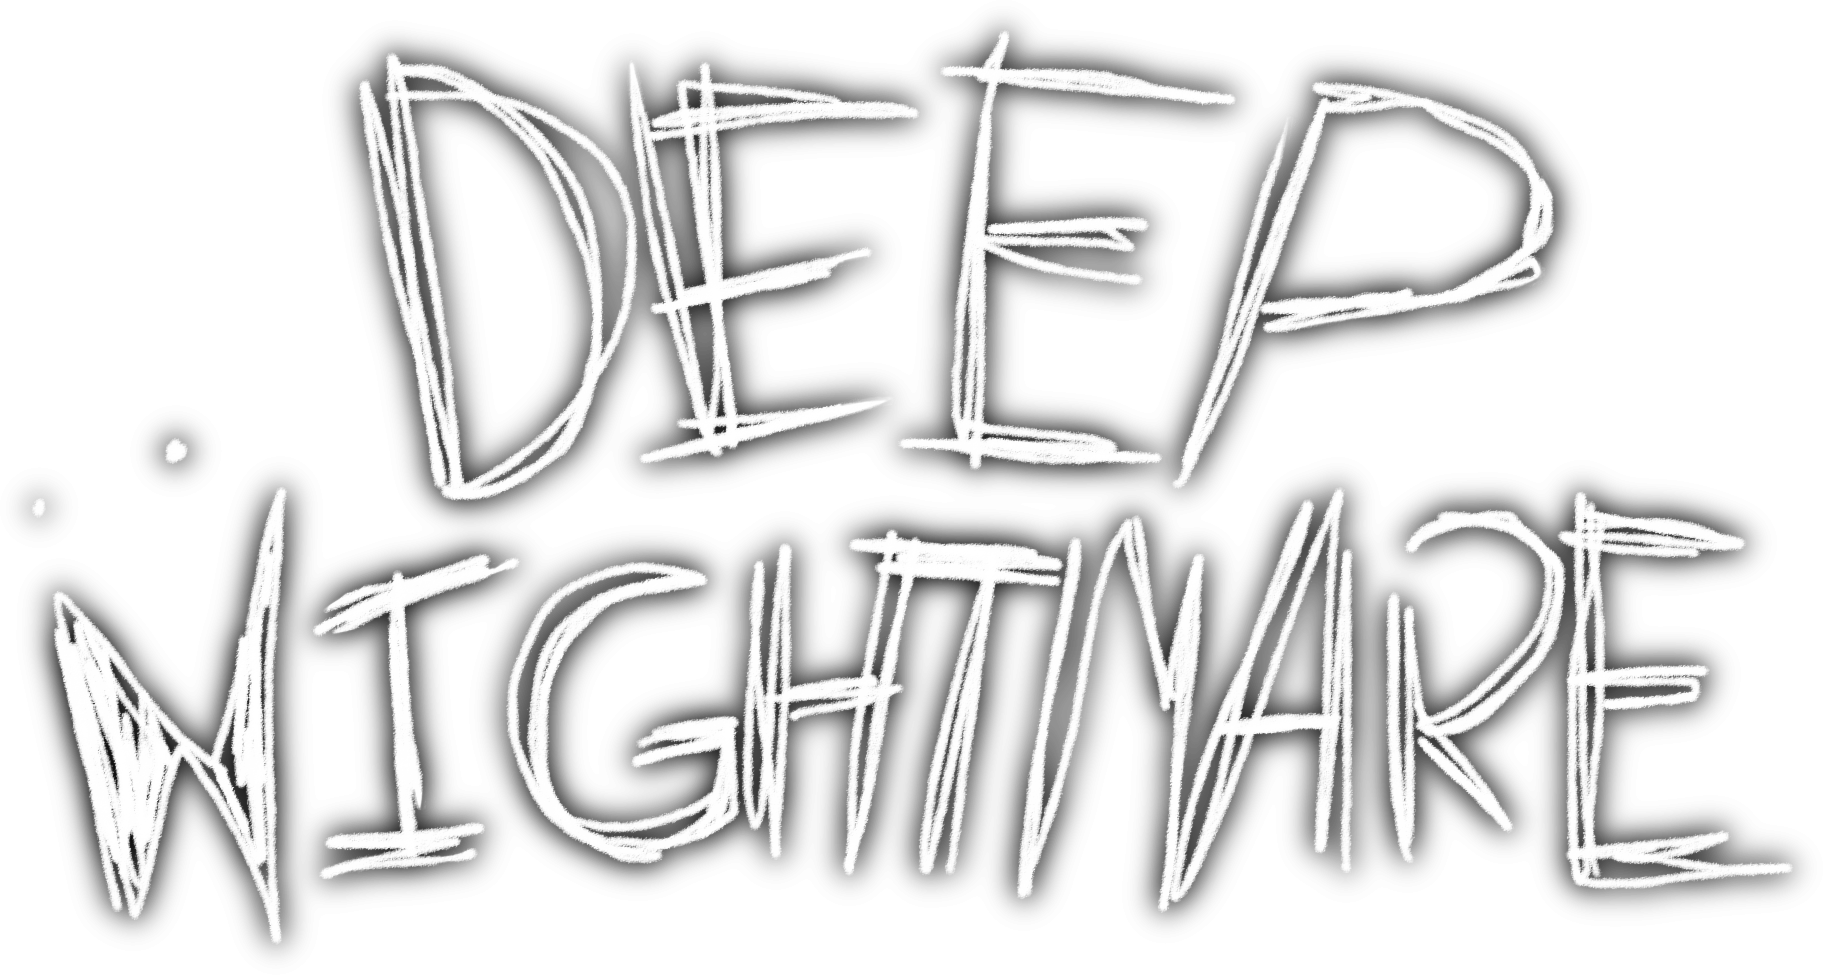 DEEP
NIGHTMARE